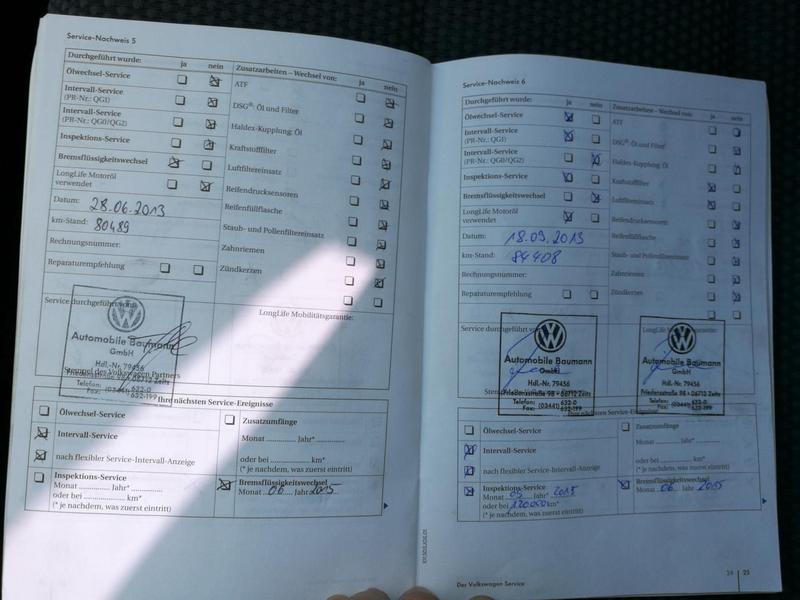 Service-Nachweis 5
Durchgeführt wurde: ja nein
Ölwechsel-Service
Intervall-Service
(PR-Nr.: QG1)
Intervall-Service
(PR-Nr.: QG0/QG2)
Inspektions-Service
Bremsflüssigkeitswechsel
LongLife Motoröl
verwendet
Datum: 28.06.2013
km-Stand: 80489
Rechnungsnummer:
Reparaturempfehlung
Service durchgeführt von:
Automobile Baumann
GmbH
Hdl.-Nr. 79456
Stempel des Volkswagen Partners
Friedensstraße 98 • 06712 Zeitz
Telefon: 632-0
Fax: 632-199
Zusatzarbeiten – Wechsel von: ja nein
ATF
DSG®: Öl und Filter
Haldex-Kupplung: Öl
Kraftstofffilter
Luftfiltereinsatz
Reifendrucksensoren
Reifenfüllflasche
Staub- und Pollenfiltereinsatz
Zahnriemen
Zündkerzen
LongLife Mobilitätsgarantie:
Ihre nächsten Service-Ereignisse
Ölwechsel-Service
Intervall-Service
nach flexibler Service-Intervall-Anzeige
Inspektions-Service
Monat .............. Jahr* ................
oder bei .................... km*
(* je nachdem, was zuerst eintritt)
Zusatzumfänge
Monat .............. Jahr* ..............
oder bei .................... km*
(* je nachdem, was zuerst eintritt)
Bremsflüssigkeitswechsel
Monat 06 Jahr 2015
Service-Nachweis 6
Durchgeführt wurde: ja nein
Ölwechsel-Service
Intervall-Service
(PR-Nr.: QG1)
Intervall-Service
(PR-Nr.: QG0/QG2)
Inspektions-Service
Bremsflüssigkeitswechsel
LongLife Motoröl
verwendet
Datum: 18.09.2013
km-Stand: 84408
Rechnungsnummer:
Reparaturempfehlung
Service durchgeführt von:
Automobile Baumann
GmbH
Hdl.-Nr. 79456
Friedensstraße 98 • 06712 Zeitz
Telefon: (03441) 632-0
Fax: (03441) 632-199
Zusatzarbeiten – Wechsel von: ja nein
ATF
DSG®: Öl und Filter
Haldex-Kupplung: Öl
Kraftstofffilter
Luftfiltereinsatz
Reifendrucksensoren
Reifenfüllflasche
Staub- und Pollenfiltereinsatz
Zahnriemen
Zündkerzen
Automobile Baumann
GmbH
Hdl.-Nr. 79456
Friedensstraße 98 • 06712 Zeitz
Telefon: (03441) 632-0
Fax: (03441) 632-199
Ihre nächsten Service-Ereignisse
Ölwechsel-Service
Intervall-Service
nach flexibler Service-Intervall-Anzeige
Inspektions-Service
Monat 09 Jahr* 2015
oder bei 120.000 km*
(* je nachdem, was zuerst eintritt)
Zusatzumfänge
Monat .............. Jahr* ..............
oder bei .................... km*
(* je nachdem, was zuerst eintritt)
Bremsflüssigkeitswechsel
Monat 06 Jahr 2015
Der Volkswagen Service
24 | 25